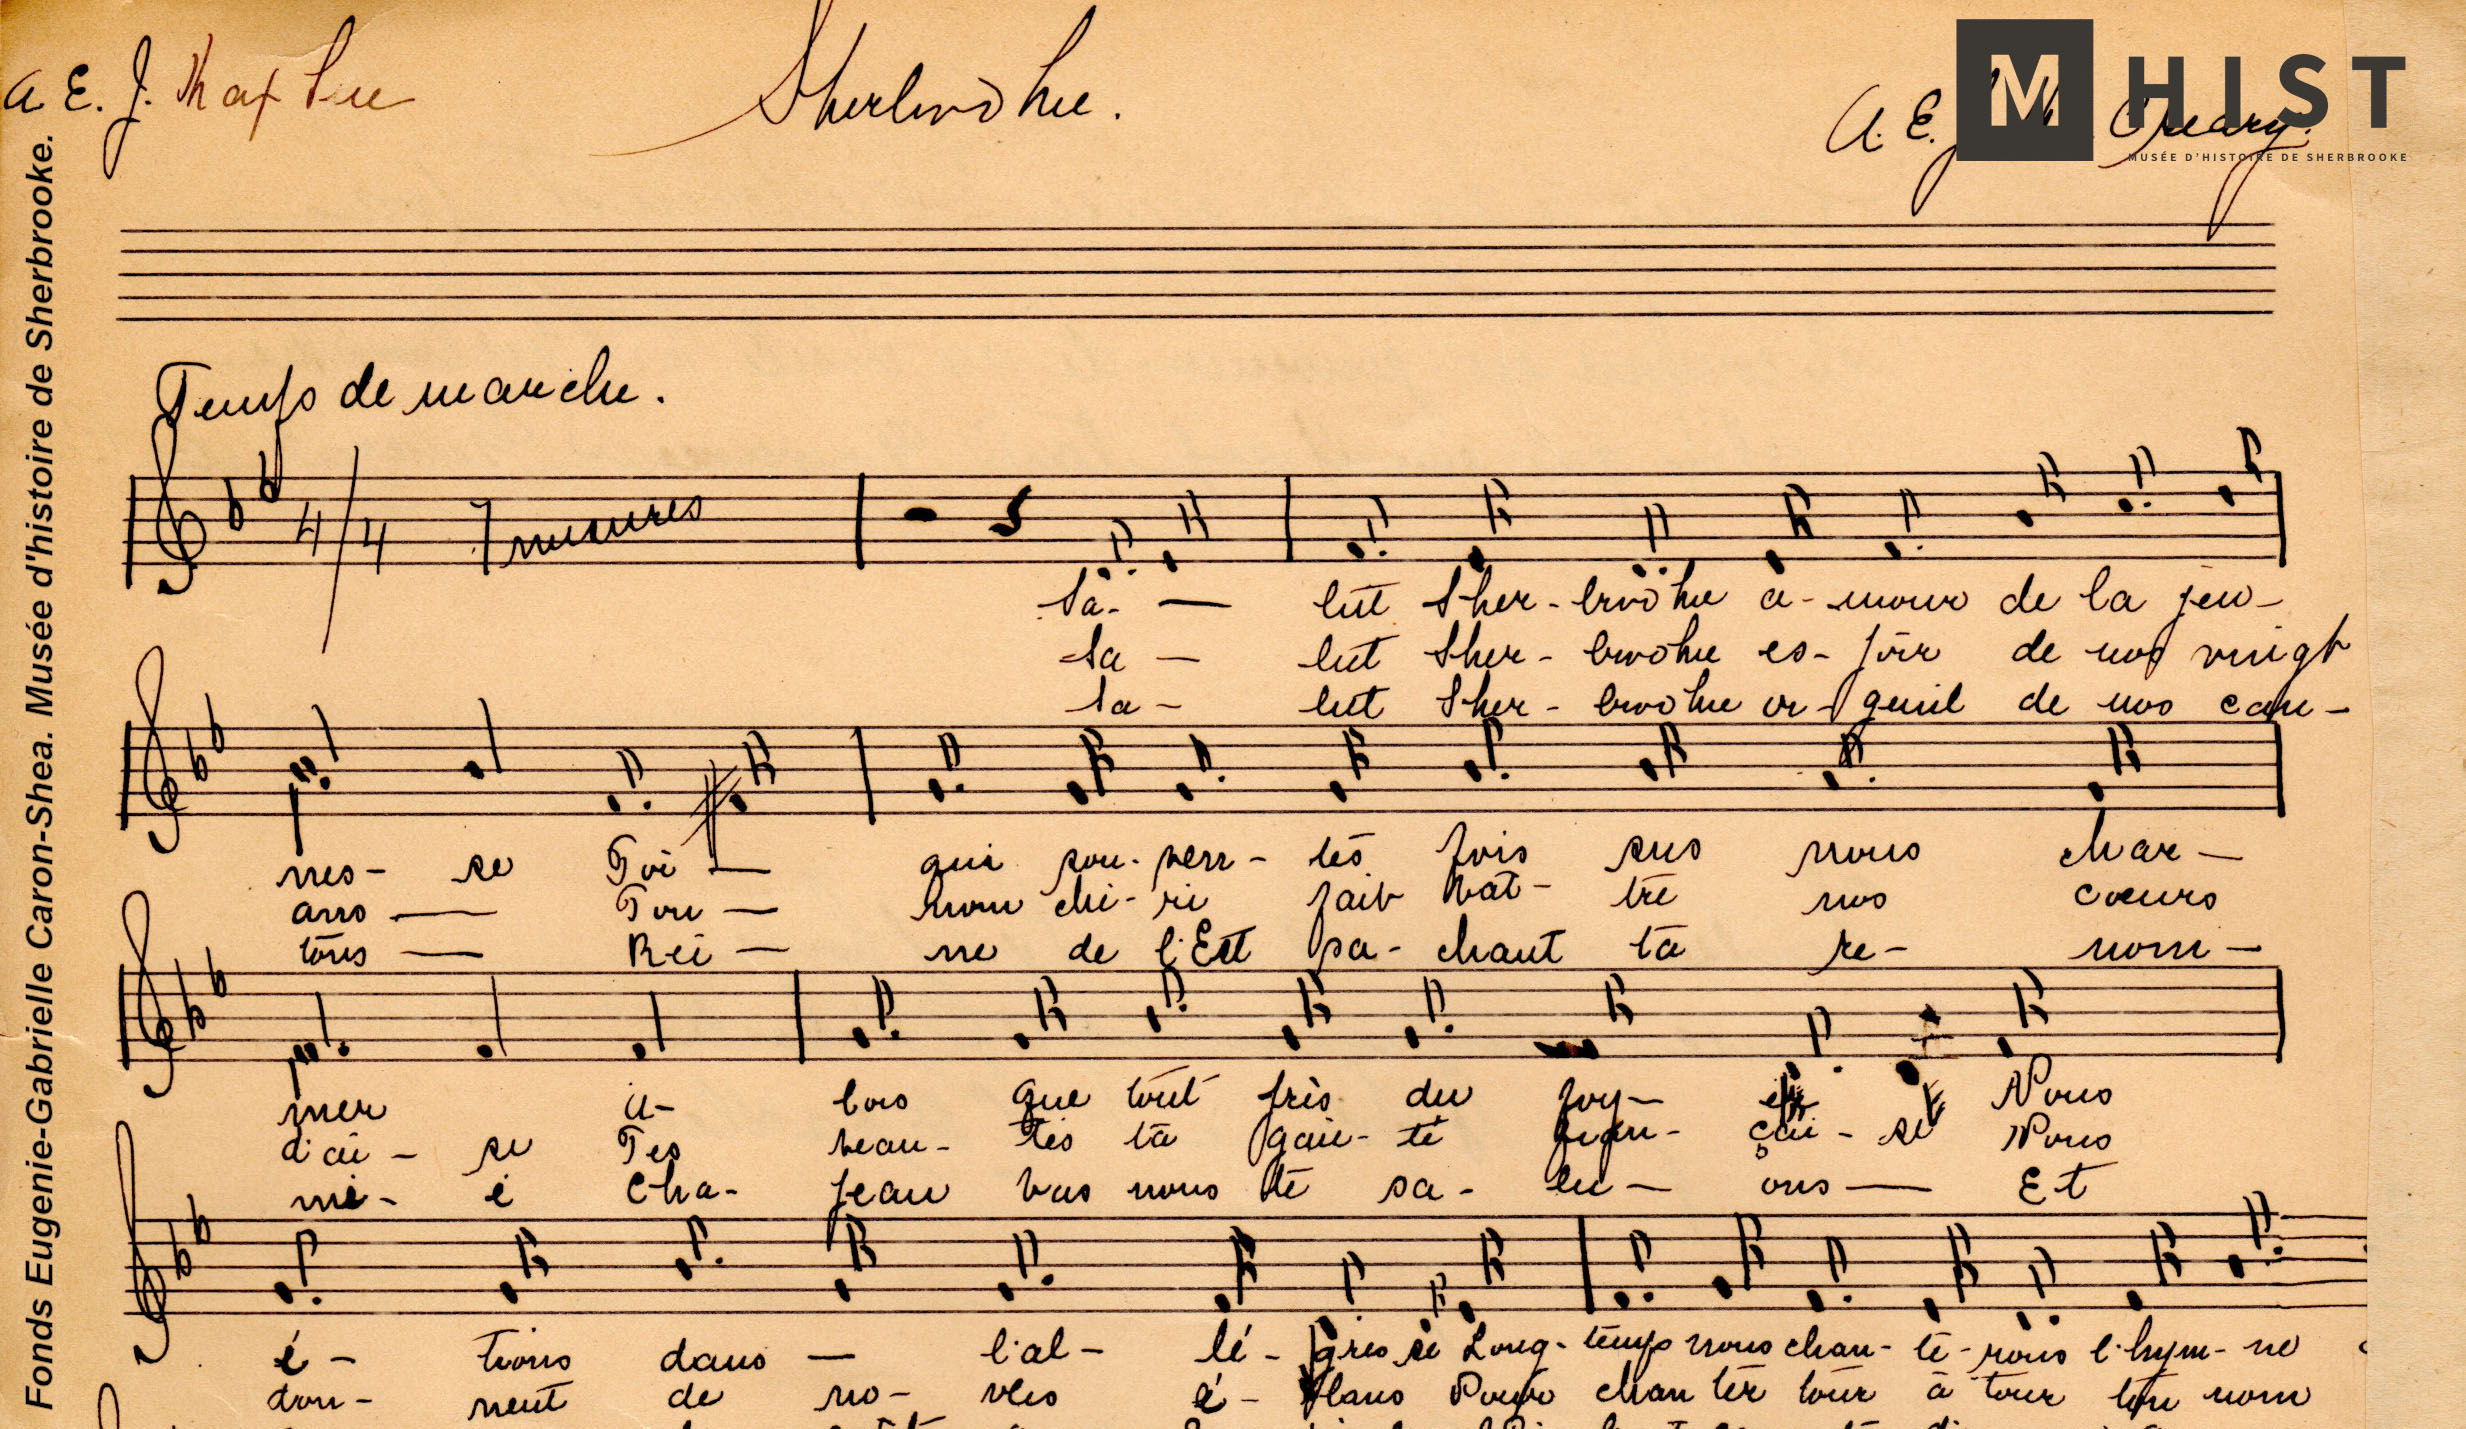 A. E. J.
Sherbrooke.
A. E. J.
M HIST
MUSÉE D'HISTOIRE DE SHERBROOKE
Fonds Eugenie-Gabrielle Caron-Shea. Musée d'histoire de Sherbrooke.
Temps de marche.
4/4 7 mesures
Sa- — lut Sher- brooke a- mour de la jeu-
Sa — lut Sher- brooke es- poir de nos vingt
Sa- lut Sher- brooke or- gueil de nos can-
nes- se Toi — qui sou- vent- tes fois sus nous char-
ans — Ton — nom ché- ri fait bat- tre nos coeurs
tons — Rei — ne de l'Est sa- chant ta re- nom-
mer a- lors que tout près du Nous
d'ai- se Tes beau- tés ta gaie- té fran- çai- se Nous
mé- e Cha- peau bas nous te sa- lu- ons — Et
é- tions dans — l'al- lé- gres se Long- temps nous chan- te- rons l'hym- ne
don- nent de no- bles é- lans Pour chan ter tour à tour ton nom